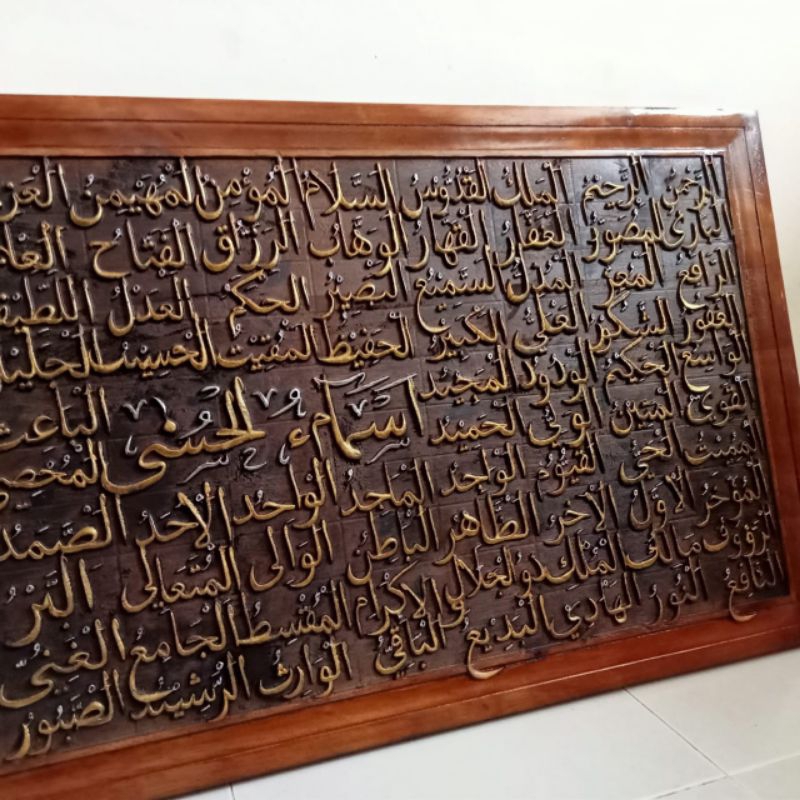 الرَّحْمٰنُ الرَّحِيْمُ المَلِكُ القُدُّوْسُ السَّلَامُ المُؤْمِنُ المُهَيْمِنُ
البَارِئُ المُصَوِّرُ الغَفَّارُ القَهَّارُ الوَهَّابُ الرَّزَّاقُ الفَتَّاحُ
الرَّافِعُ المُعِزُّ المُذِلُّ السَّمِيْعُ البَصِيْرُ الحَكَمُ العَدْلُ
الغَفُوْرُ الشَّكُوْرُ العَلِيُّ الكَبِيْرُ الحَفِيْظُ المُقِيْتُ الحَسِيْبُ الجَلِيْلُ
الوَاسِعُ الحَكِيْمُ الوَدُوْدُ المَجِيْدُ
اسماء الحسنى
البَاعِثُ
القَوِيُّ المَتِيْنُ الوَلِيُّ الحَمِيْدُ
المُمِيْتُ الحَيُّ القَيُّوْمُ الوَاجِدُ المَاجِدُ الوَاحِدُ الاَحَدُ الصَّمَدُ
المُؤَخِّرُ الاَوَّلُ الاٰخِرُ الظَّاهِرُ البَاطِنُ الوَالِى المُتَعَالِى البَرُّ
الرَّؤُوْفُ مَالِكُ المُلْكِ ذُو الجَلَالِ وَالاِكْرَامِ المُقْسِطُ الجَامِعُ الغَنِىُّ
النَّافِعُ النُّوْرُ الهَادِيْ البَدِيْعُ البَاقِيْ الوَارِثُ الرَّشِيْدُ الصَّبُوْرُ